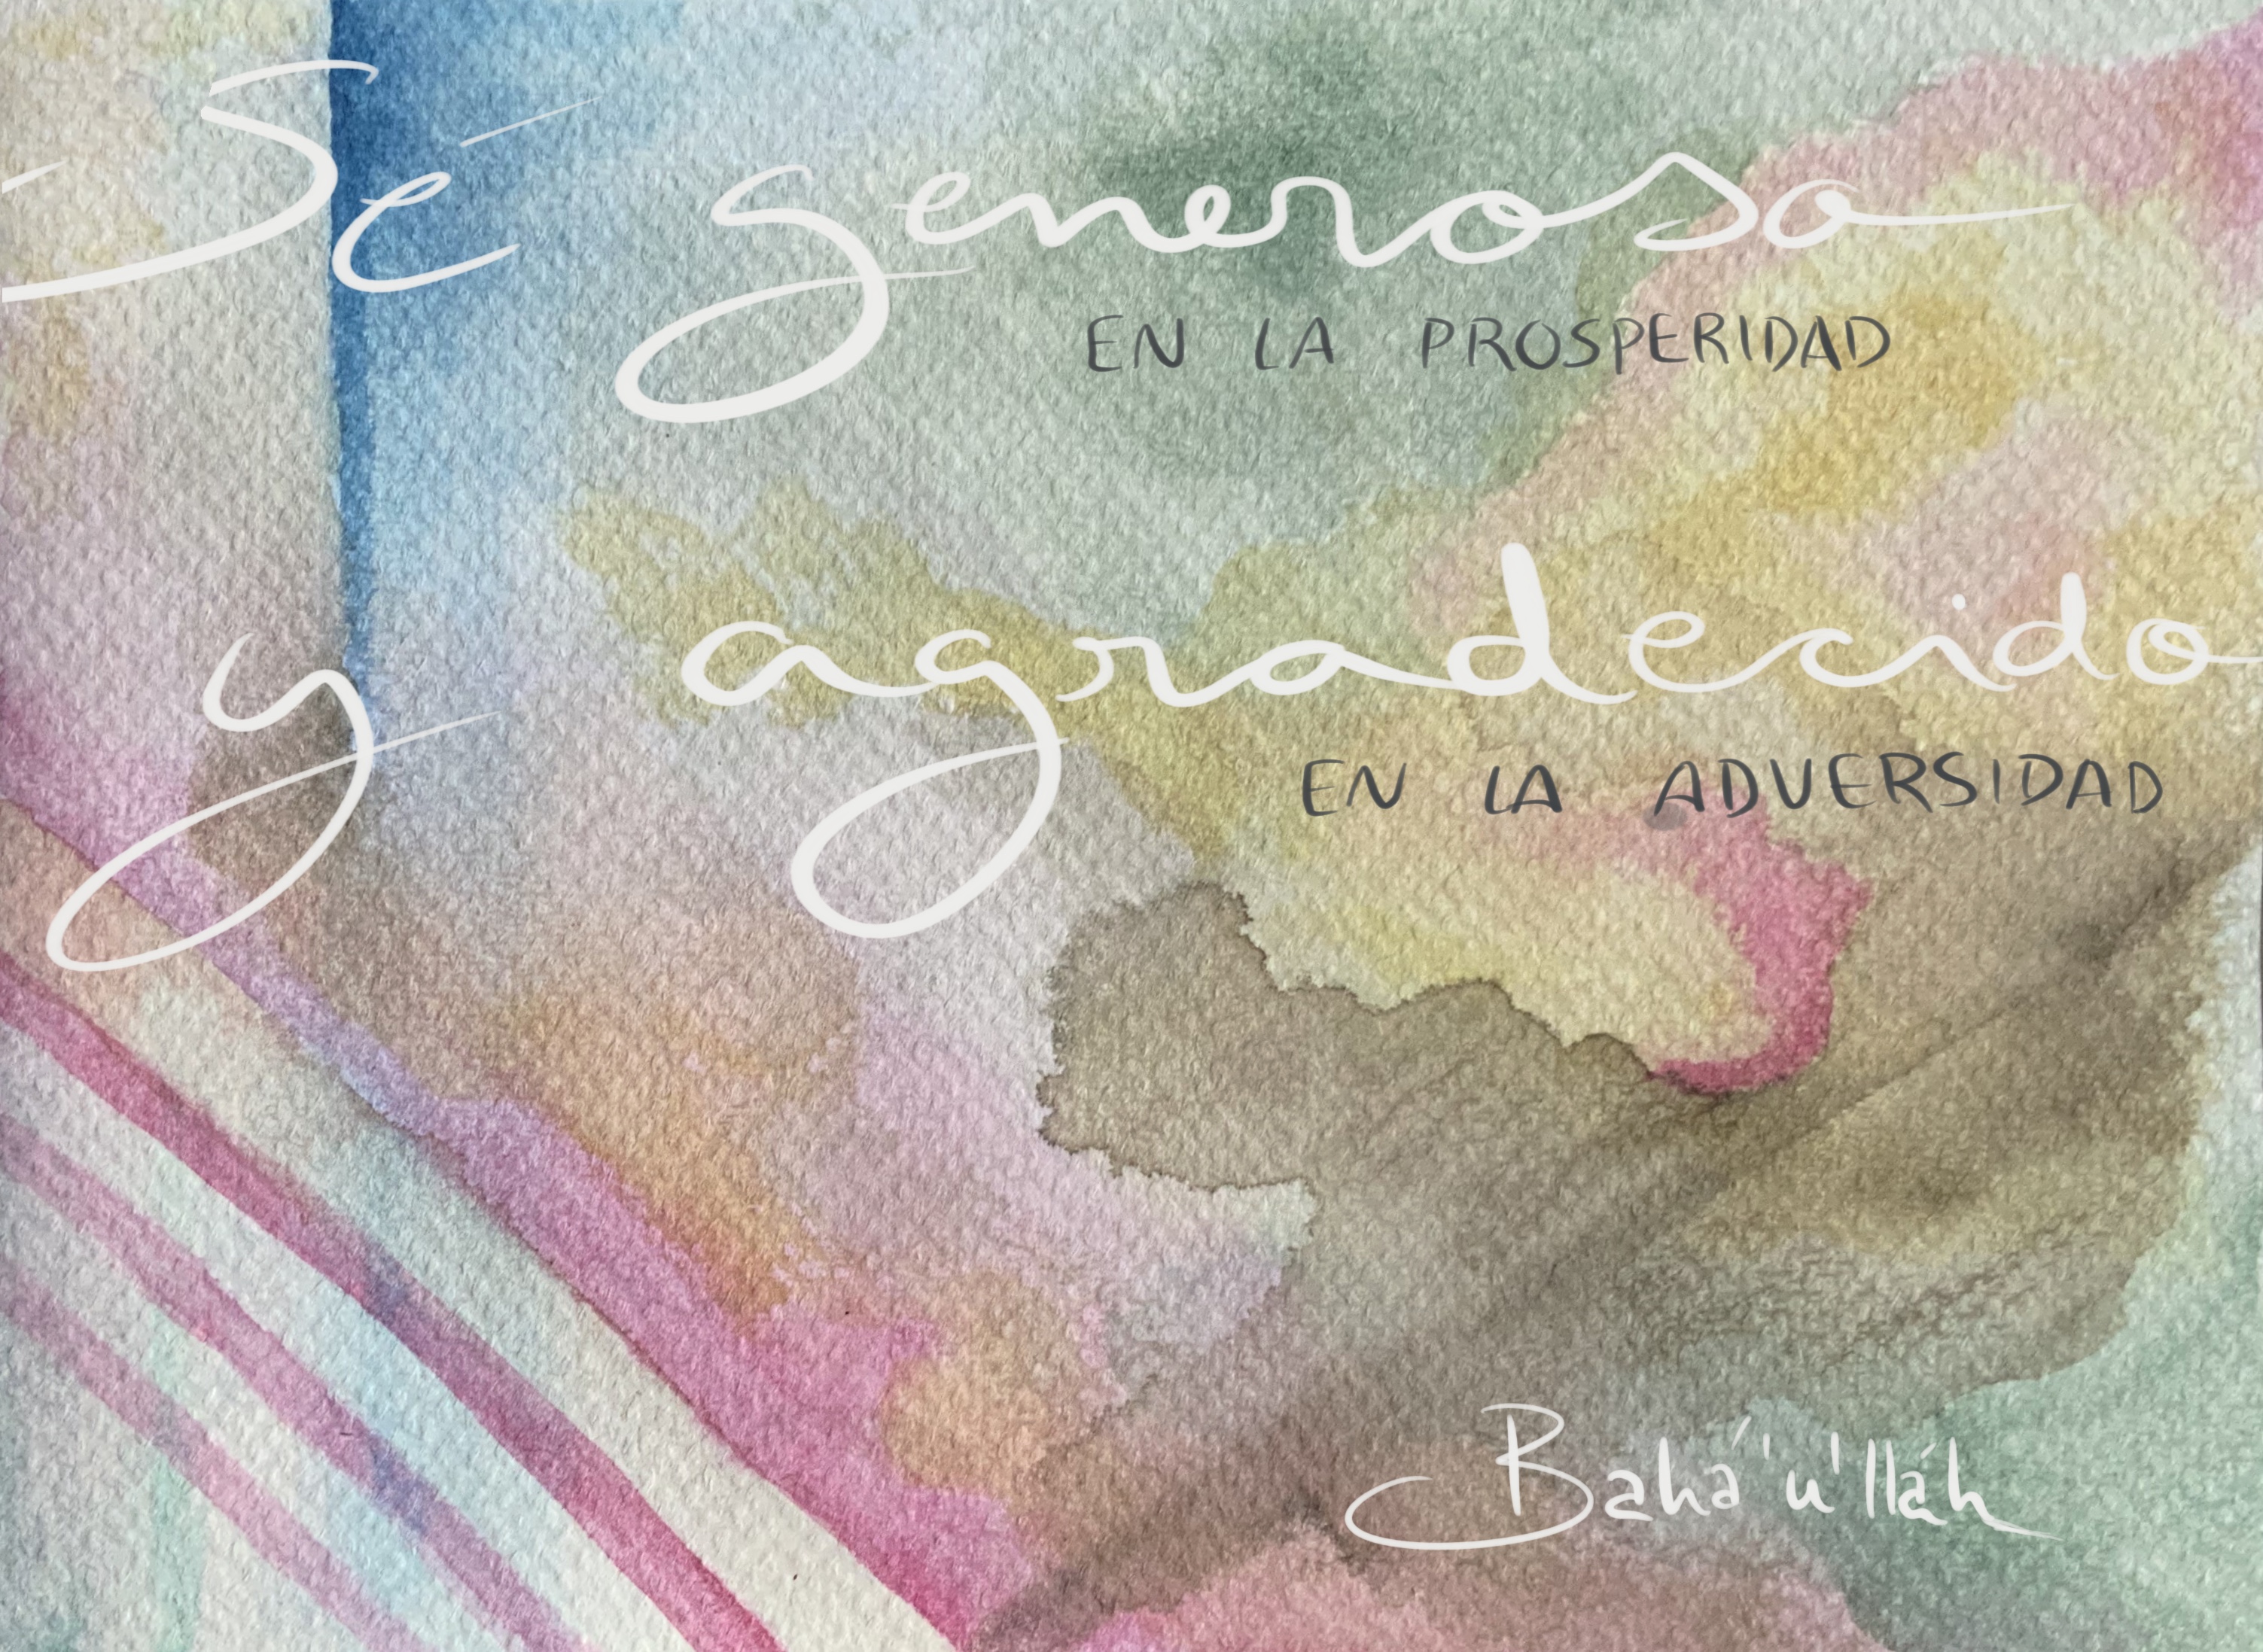 Sé generoso
EN LA PROSPERIDAD
y agradecido
EN LA ADVERSIDAD
Bahá'u'lláh